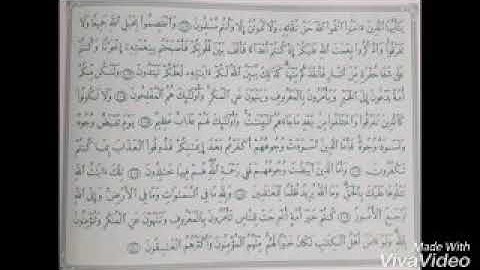 يَٰٓأَيُّهَا الَّذِينَ ءَامَنُوا اتَّقُوا اللَّهَ حَقَّ تُقَاتِهِ وَلَا تَمُوتُنَّ إِلَّا وَأَنتُم مُّسْلِمُونَ وَاعْتَصِمُوا بِحَبْلِ اللَّهِ جَمِيعًا وَلَا
تَفَرَّقُوا وَاذْكُرُوا نِعْمَتَ اللَّهِ عَلَيْكُمْ إِذْ كُنتُمْ أَعْدَاءً فَأَلَّفَ بَيْنَ قُلُوبِكُمْ فَأَصْبَحْتُم بِنِعْمَتِهِ إِخْوَٰنًا وَكُنتُمْ
عَلَىٰ شَفَا حُفْرَةٍ مِّنَ النَّارِ فَأَنقَذَكُم مِّنْهَا كَذَٰلِكَ يُبَيِّنُ اللَّهُ لَكُمْ ءَايَٰتِهِ لَعَلَّكُمْ تَهْتَدُونَ وَلْتَكُن مِّنكُمْ
أُمَّةٌ يَدْعُونَ إِلَى الْخَيْرِ وَيَأْمُرُونَ بِالْمَعْرُوفِ وَيَنْهَوْنَ عَنِ الْمُنكَرِ وَأُولَٰئِكَ هُمُ الْمُفْلِحُونَ وَلَا تَكُونُوا
كَالَّذِينَ تَفَرَّقُوا وَاخْتَلَفُوا مِن بَعْدِ مَا جَاءَهُمُ الْبَيِّنَٰتُ وَأُولَٰئِكَ لَهُمْ عَذَابٌ عَظِيمٌ يَوْمَ تَبْيَضُّ وُجُوهٌ
وَتَسْوَدُّ وُجُوهٌ فَأَمَّا الَّذِينَ اسْوَدَّتْ وُجُوهُهُمْ أَكَفَرْتُم بَعْدَ إِيمَٰنِكُمْ فَذُوقُوا الْعَذَابَ بِمَا كُنتُمْ
تَكْفُرُونَ وَأَمَّا الَّذِينَ ابْيَضَّتْ وُجُوهُهُمْ فَفِي رَحْمَةِ اللَّهِ هُمْ فِيهَا خَٰلِدُونَ تِلْكَ ءَايَٰتُ اللَّهِ
نَتْلُوهَا عَلَيْكَ بِالْحَقِّ وَمَا اللَّهُ يُرِيدُ ظُلْمًا لِّلْعَٰلَمِينَ وَلِلَّهِ مَا فِي السَّمَٰوَٰتِ وَمَا فِي الْأَرْضِ وَإِلَى اللَّهِ
تُرْجَعُ الْأُمُورُ كُنتُمْ خَيْرَ أُمَّةٍ أُخْرِجَتْ لِلنَّاسِ تَأْمُرُونَ بِالْمَعْرُوفِ وَتَنْهَوْنَ عَنِ الْمُنكَرِ وَتُؤْمِنُونَ
بِاللَّهِ وَلَوْ ءَامَنَ أَهْلُ الْكِتَٰبِ لَكَانَ خَيْرًا لَّهُم مِّنْهُمُ الْمُؤْمِنُونَ وَأَكْثَرُهُمُ الْفَٰسِقُونَ
Made With
VivaVideo